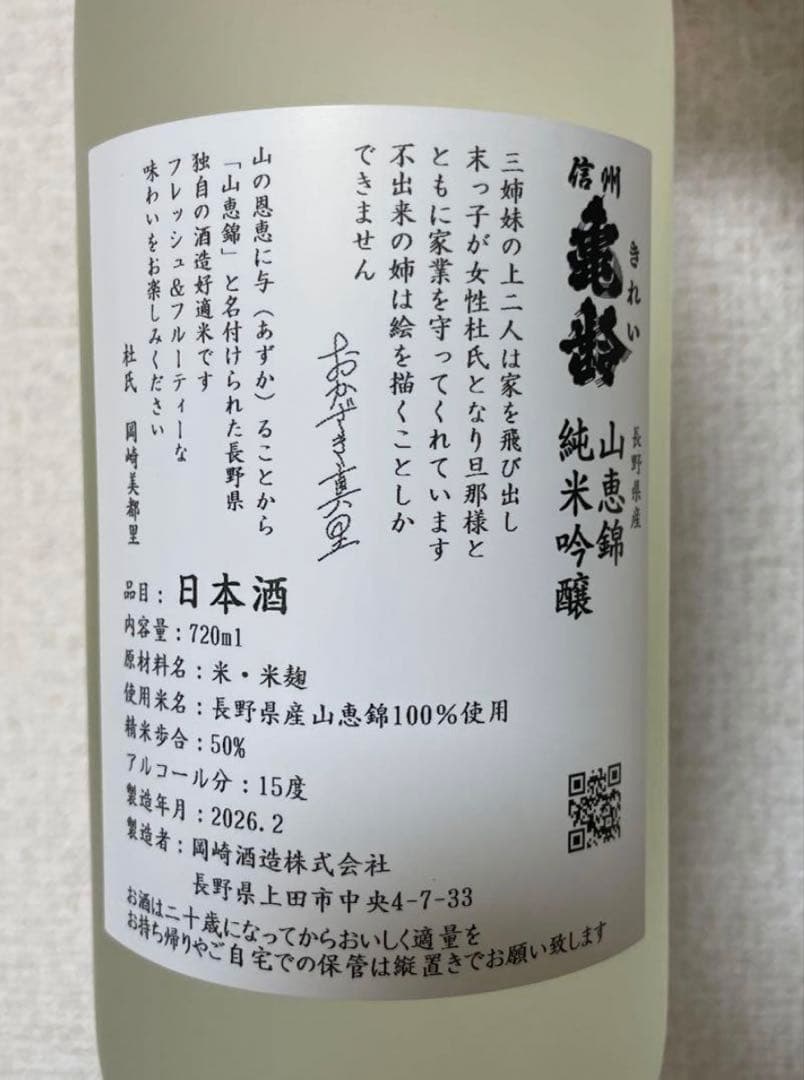 信州
亀齢
きれい
長野県産
山恵錦
純米吟醸
三姉妹の上二人は家を飛び出し
末っ子が女性杜氏となり旦那様と
ともに家業を守ってくれています
不出来の姉は絵を描くことしか
できません
おかざき真里
山の恩恵に与(あずか)ることから
「山恵錦」と名付けられた長野県
独自の酒造好適米です
フレッシュ&フルーティーな
味わいをお楽しみください
杜氏 岡崎美都里
品目:日本酒
内容量:720ml
原材料名:米・米麹
使用米名:長野県産山恵錦100%使用
精米歩合:50%
アルコール分:15度
製造年月:2026.2
製造者:岡崎酒造株式会社
長野県上田市中央4-7-33
お酒は二十歳になってからおいしく適量を
お持ち帰りやご自宅での保管は縦置きでお願い致します